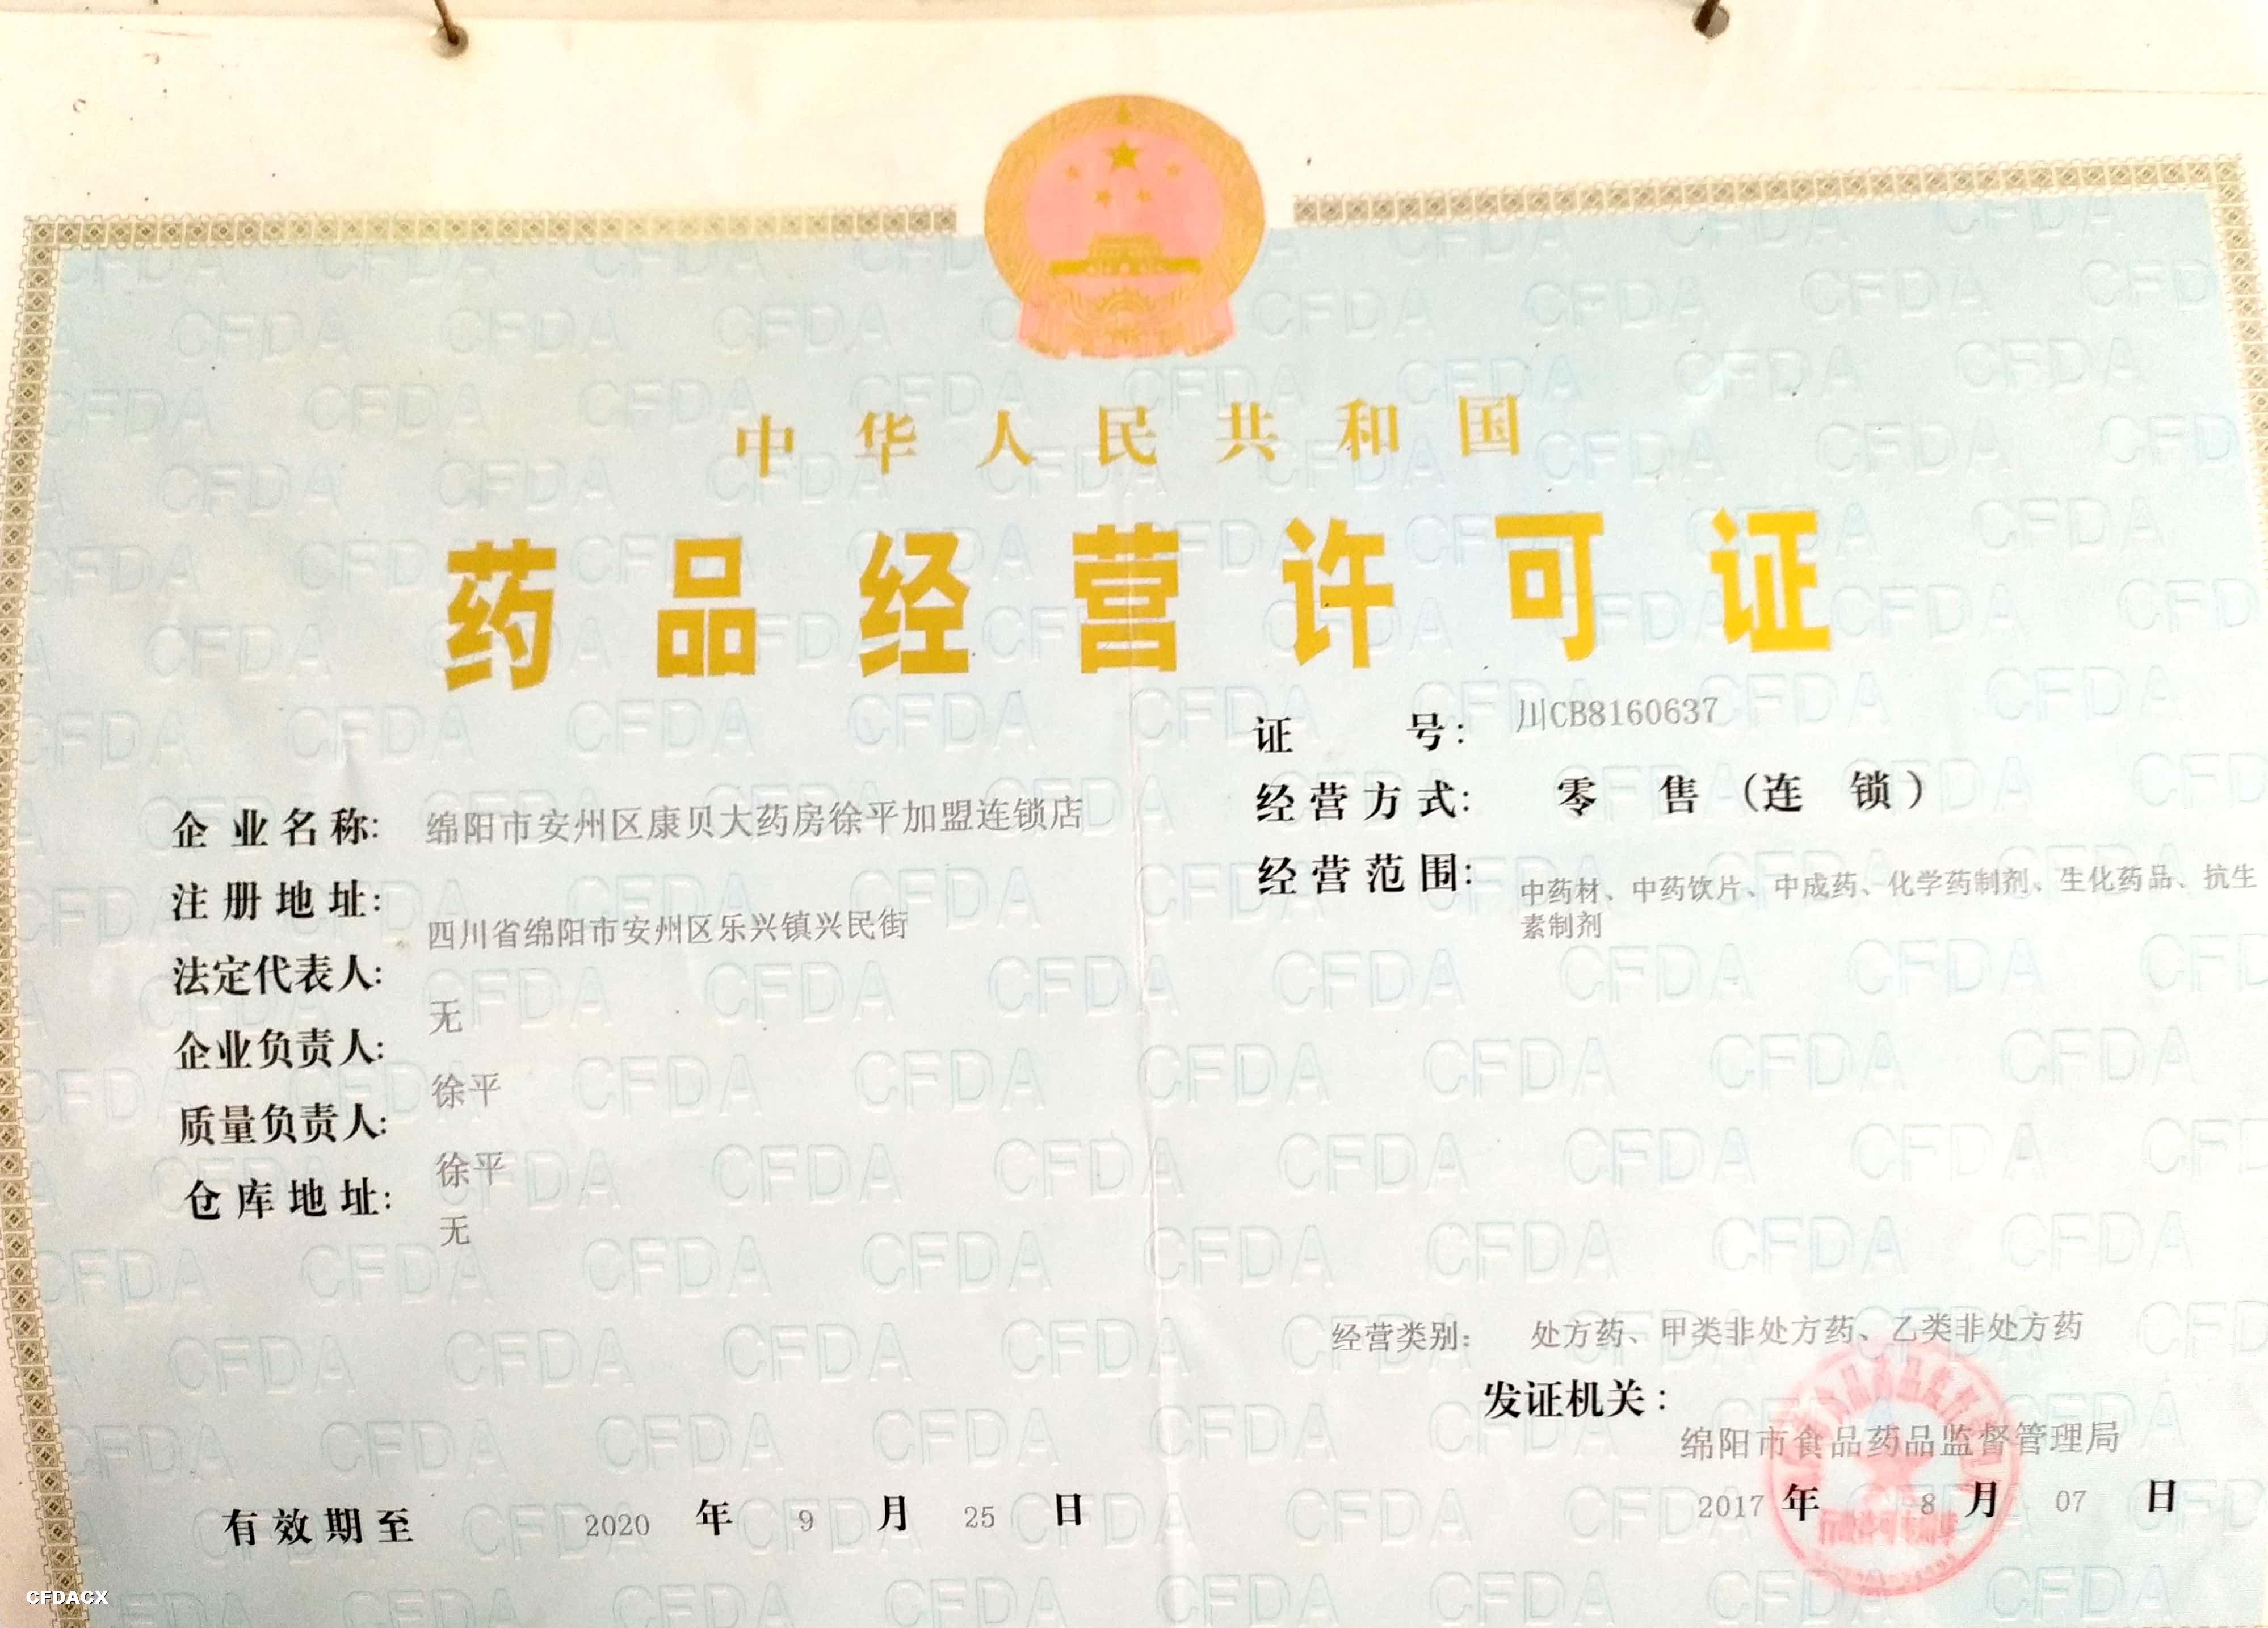 中华人民共和国
药品经营许可证
证号：川CB8160637
企业名称：绵阳市安州区康贝大药房徐平加盟连锁店
经营方式：零售（连锁）
注册地址：四川省绵阳市安州区乐兴镇兴民街
经营范围：中药材、中药饮片、中成药、化学药制剂、生化药品、抗生
素制剂
法定代表人：无
企业负责人：徐平
质量负责人：徐平
仓库地址：无
经营类别：处方药、甲类非处方药、乙类非处方药
发证机关：
绵阳市食品药品监督管理局
有效期至 2020 年 9 月 25 日
2017 年 8 月 07 日
CFDACX
CFDA